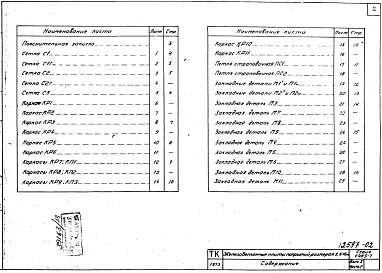 Наименование листа Лист Стр.
Пояснительная записка 3
Сетка С1 1 4
Сетка С11 2 5
Сетка С2 3 5
Сетка С21 4 —
Сетка С3 5 6
Каркас КР1 6 —
Каркас КР2 7 —
Каркас КР3 8 7
Каркас КР4 9 —
Каркас КР5 10 8
Каркас КР6 11 —
Каркасы КР7; КП1 12 9
Каркасы КР8; КП2 13 —
Каркасы КР9; КП3 14 10
Наименование листа Лист Стр.
Каркас КР10 15 10
Каркас КР11 16 —
Петля строповочная ПС1 17 11
Петля строповочная ПС2 18 —
Закладные детали 19 12
Закладные детали 20 13
Закладная деталь М3 21 14
Закладная деталь М7 22 —
Закладная деталь М8 23 —
Закладная деталь М9 24 15
Закладная деталь М4 25 —
Закладная деталь М5 26 —
Закладная деталь М6 27 —
Закладная деталь М10 28 16
Закладная деталь М11 29 —
12557-02
ТК Железобетонные плиты покрытий размером Серия
1973 Содержание